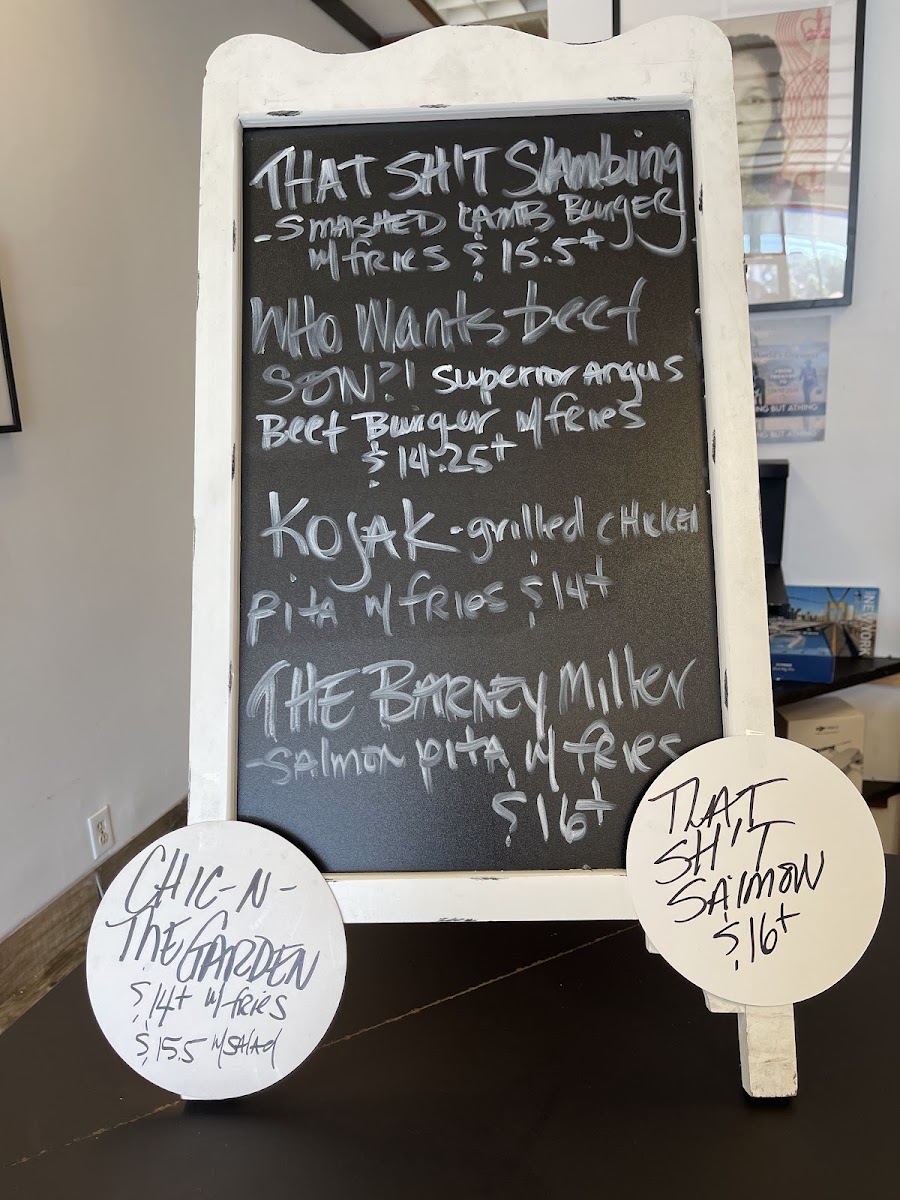 THAT SH!T Slambing
-SMASHED LAMB Burger
w/fries $15.5+
Who Wants beef
SON?! Superior Angus
Beef Burger w/fries
$14.25+
KOJAK-grilled chicken
pita w/fries $14+
THE BARNEY Miller
-Salmon pita w/ fries
$16+
CHIC-N-
THE GARDEN
$14+ w/fries
$15.5 w/salad
THAT
SH!T
SAlmON
$16+
NG BUT ATHING
NG BUT ATHING
NEW YORK